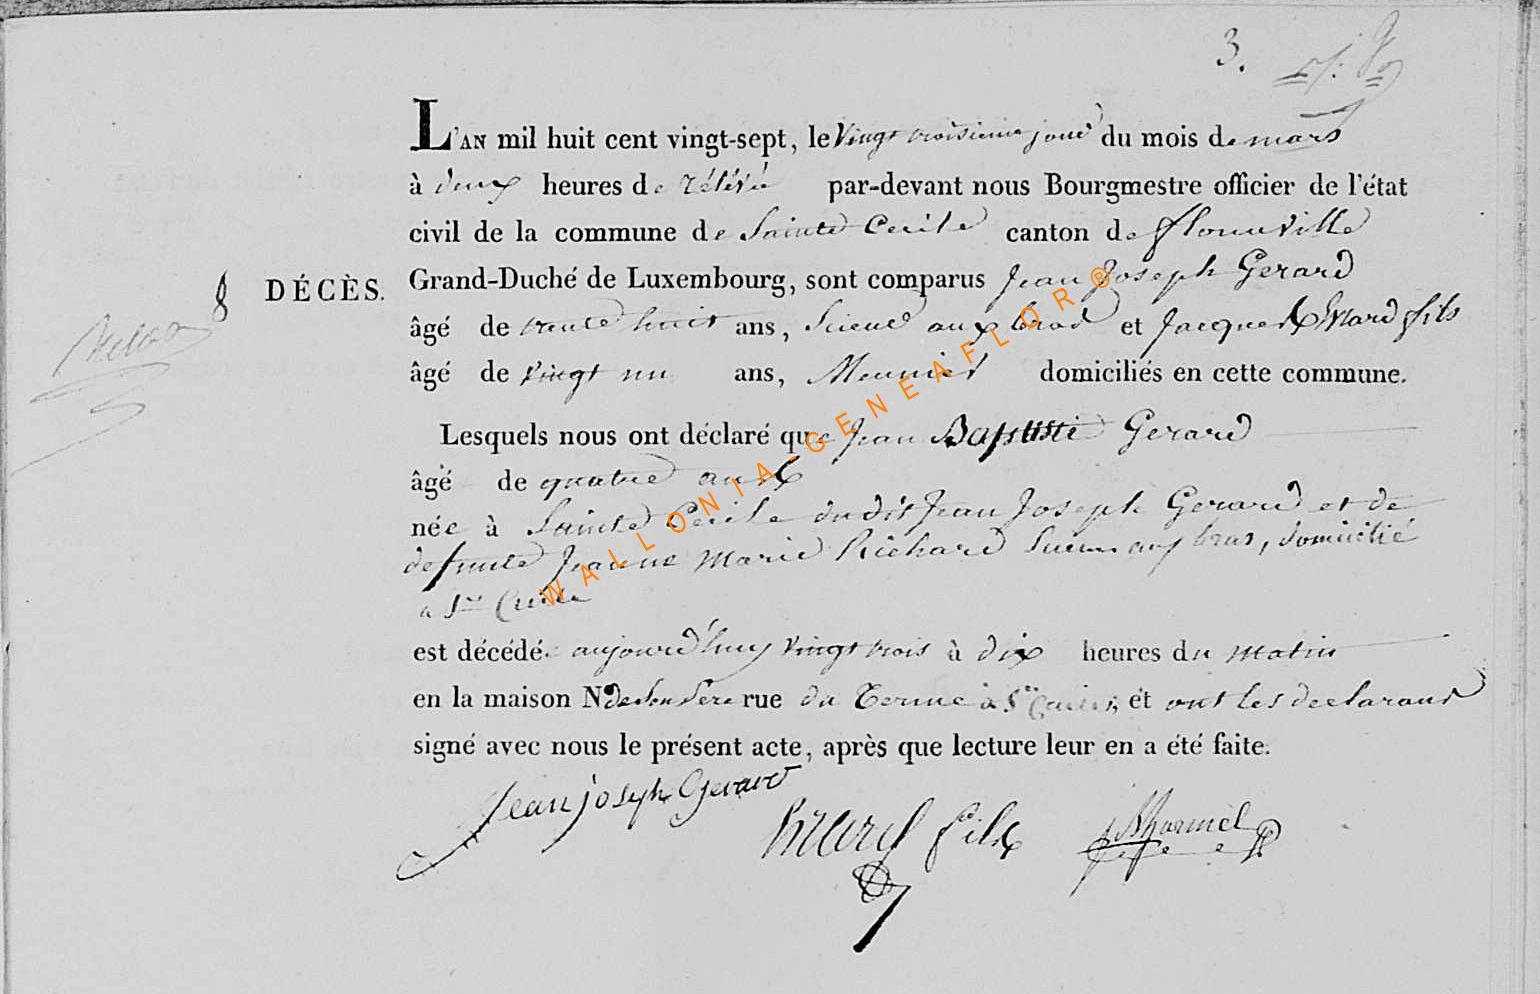 3.
L'AN mil huit cent vingt-sept, le Vingt troisieme jour du mois de mars
à deux heures de rélévé par-devant nous Bourgmestre officier de l'état
civil de la commune de Sainte Cecile canton de florenville
8 DÉCÈS. Grand-Duché de Luxembourg, sont comparus Jean Joseph Gerard
âgé de trente huit ans, Scieur aux bras et Jacques fils
âgé de vingt un ans, Meunier domiciliés en cette commune.
Lesquels nous ont déclaré que Jean Baptiste Gerard
âgé de quatre ans
née à Sainte Cecile dudit Jean Joseph Gerard et de
defunte Jeanne Marie Richard Scieur aux bras, domicilié
a Ste Cecile
est décédé aujourd'huy vingt trois à dix heures du matin
en la maison No de son Pere rue du Terme à Ste Cecile, et ont les declarans
signé avec nous le présent acte, après que lecture leur en a été faite.
Jean joseph Gerard
fils
WALLONIA-GENEAFLOR®